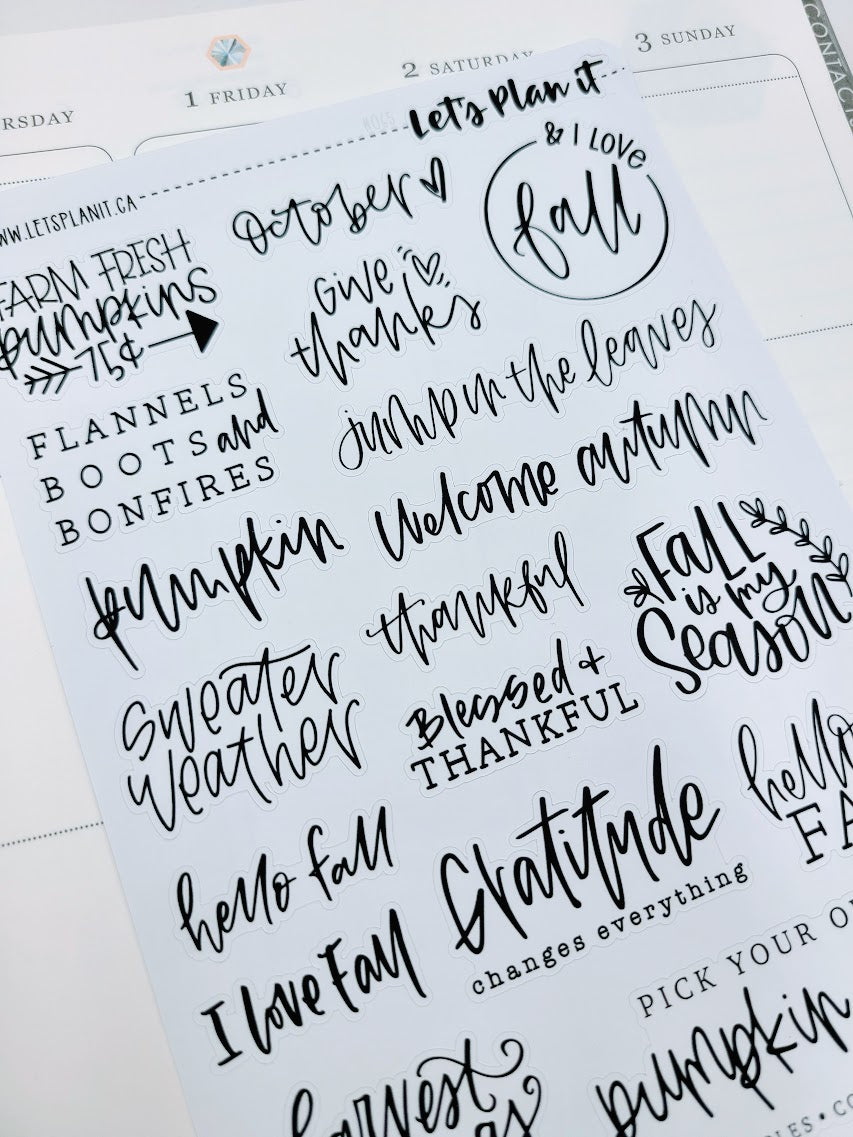 RSDAY
1 FRIDAY
2 SATURDAY
3 SUNDAY
CONTAC
Let's Plan it
WWW.LETSPLANIT.CA
October
& I LOVE
fall
FARM FRESH
pumpkins
75¢
GIVE
thanks
FLANNELS
BOOTS and
BONFIRES
jump in the leaves
Welcome autumn
pumpkin
thankful
FALL
is my
Season
Sweater
weather
Blessed +
THANKFUL
hello fall
Gratitude
changes everything
hello
FA
I love Fall
PICK YOUR O
pumpkin
harvest